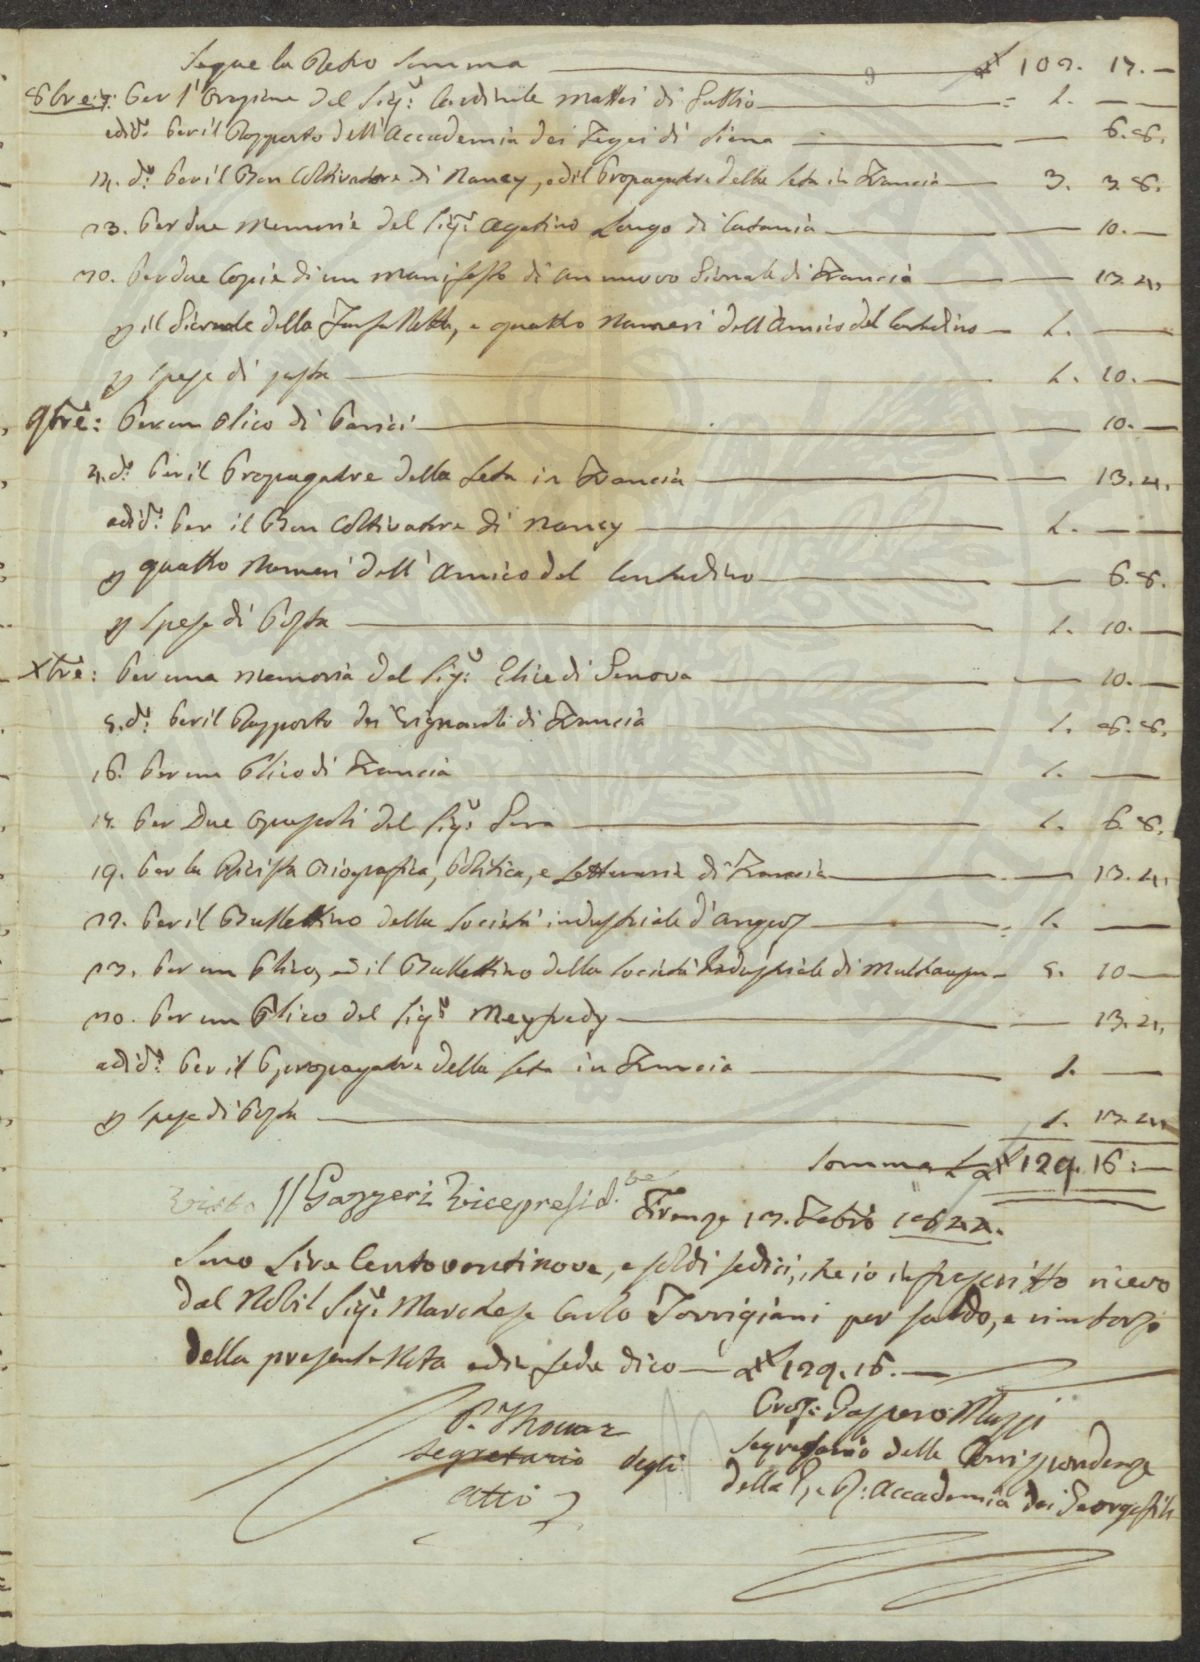 Segue la Retro Somma £ 102. 17. —
8bre 7: Per l'Orazione del Sigr: Cardinale Mattei di Gubbio = 1. — —
adido: Per il Rapporto dell'Accademia dei Tegei di Siena — 6.8.
14. do: Per il Bon Coltivatore di Nancy, ed il Propagatore della Seta in Francia 3. 3.8.
23. Per due Memorie del Sigr: Agatino Longo di Catania — 10. —
30. Per due Copie di un Manifesto di un nuovo Gionale di Francia — 13.4.
p il Giornale della , e quattro Numeri dell'Amico del Contadino 1. —
p spese di posta 1. 10. —
9bre: Per un Plico di Parigi — 10. —
4. do: Per il Propagatore della Seta in Francia — 13.4.
adido: Per il Bon Coltivatore di Nancy 1. — —
p quattro Numeri dell'Amico del Contadino — 6.8.
p spese di Posta 1. 10. —
Xbre: Per una Memoria del Sigr: Elice di Genova — 10. —
5. do: Per il Rapporto dei Vignaroli di Francia 1. 8.8.
16. Per un Plico di Francia 1. —
17. Per Due Opuscoli del Sigr: Gera 1. 6.8.
19. Per la Rivista Biografica, Politica, e Letteraria di Francia — 13.4.
22. Per il Bullettino della Società industriale d'Angers = 1. —
23. Per un Plico, ed il Bullettino della Società Industriale di 5. 10 —
30. Per un Plico del Sigr Meyfredy — 13.4.
adido: Per il Propagatore della Seta in Francia 1. —
p spese di Posta 1. 13.4.
Somma £ 129. 16: —
Visto // Gazzeri Vicepresid.te Firenze 13. Febro 1842.
Sono Lire Centoventinove, e soldi sedici, che io infrascritto ricevo
dal Nobil Sigr: Marchese Carlo Torrigiani per saldo, e rimborso
della presente Nota ed in fede dico — £ 129. 16. —
P. Thouar
Segretario degli
Atti
Prof: Gaspero Mazzi
Segretario delle Corrispondenze
della I. e R: Accademia dei Georgofili